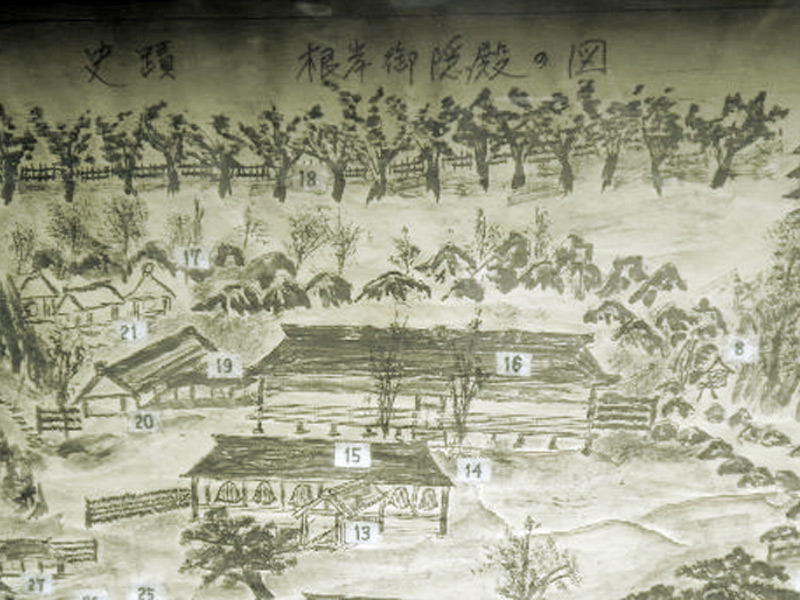 史蹟 根岸御隠殿の図
18
17
21
19
16
8
20
15
14
13
27
26
25